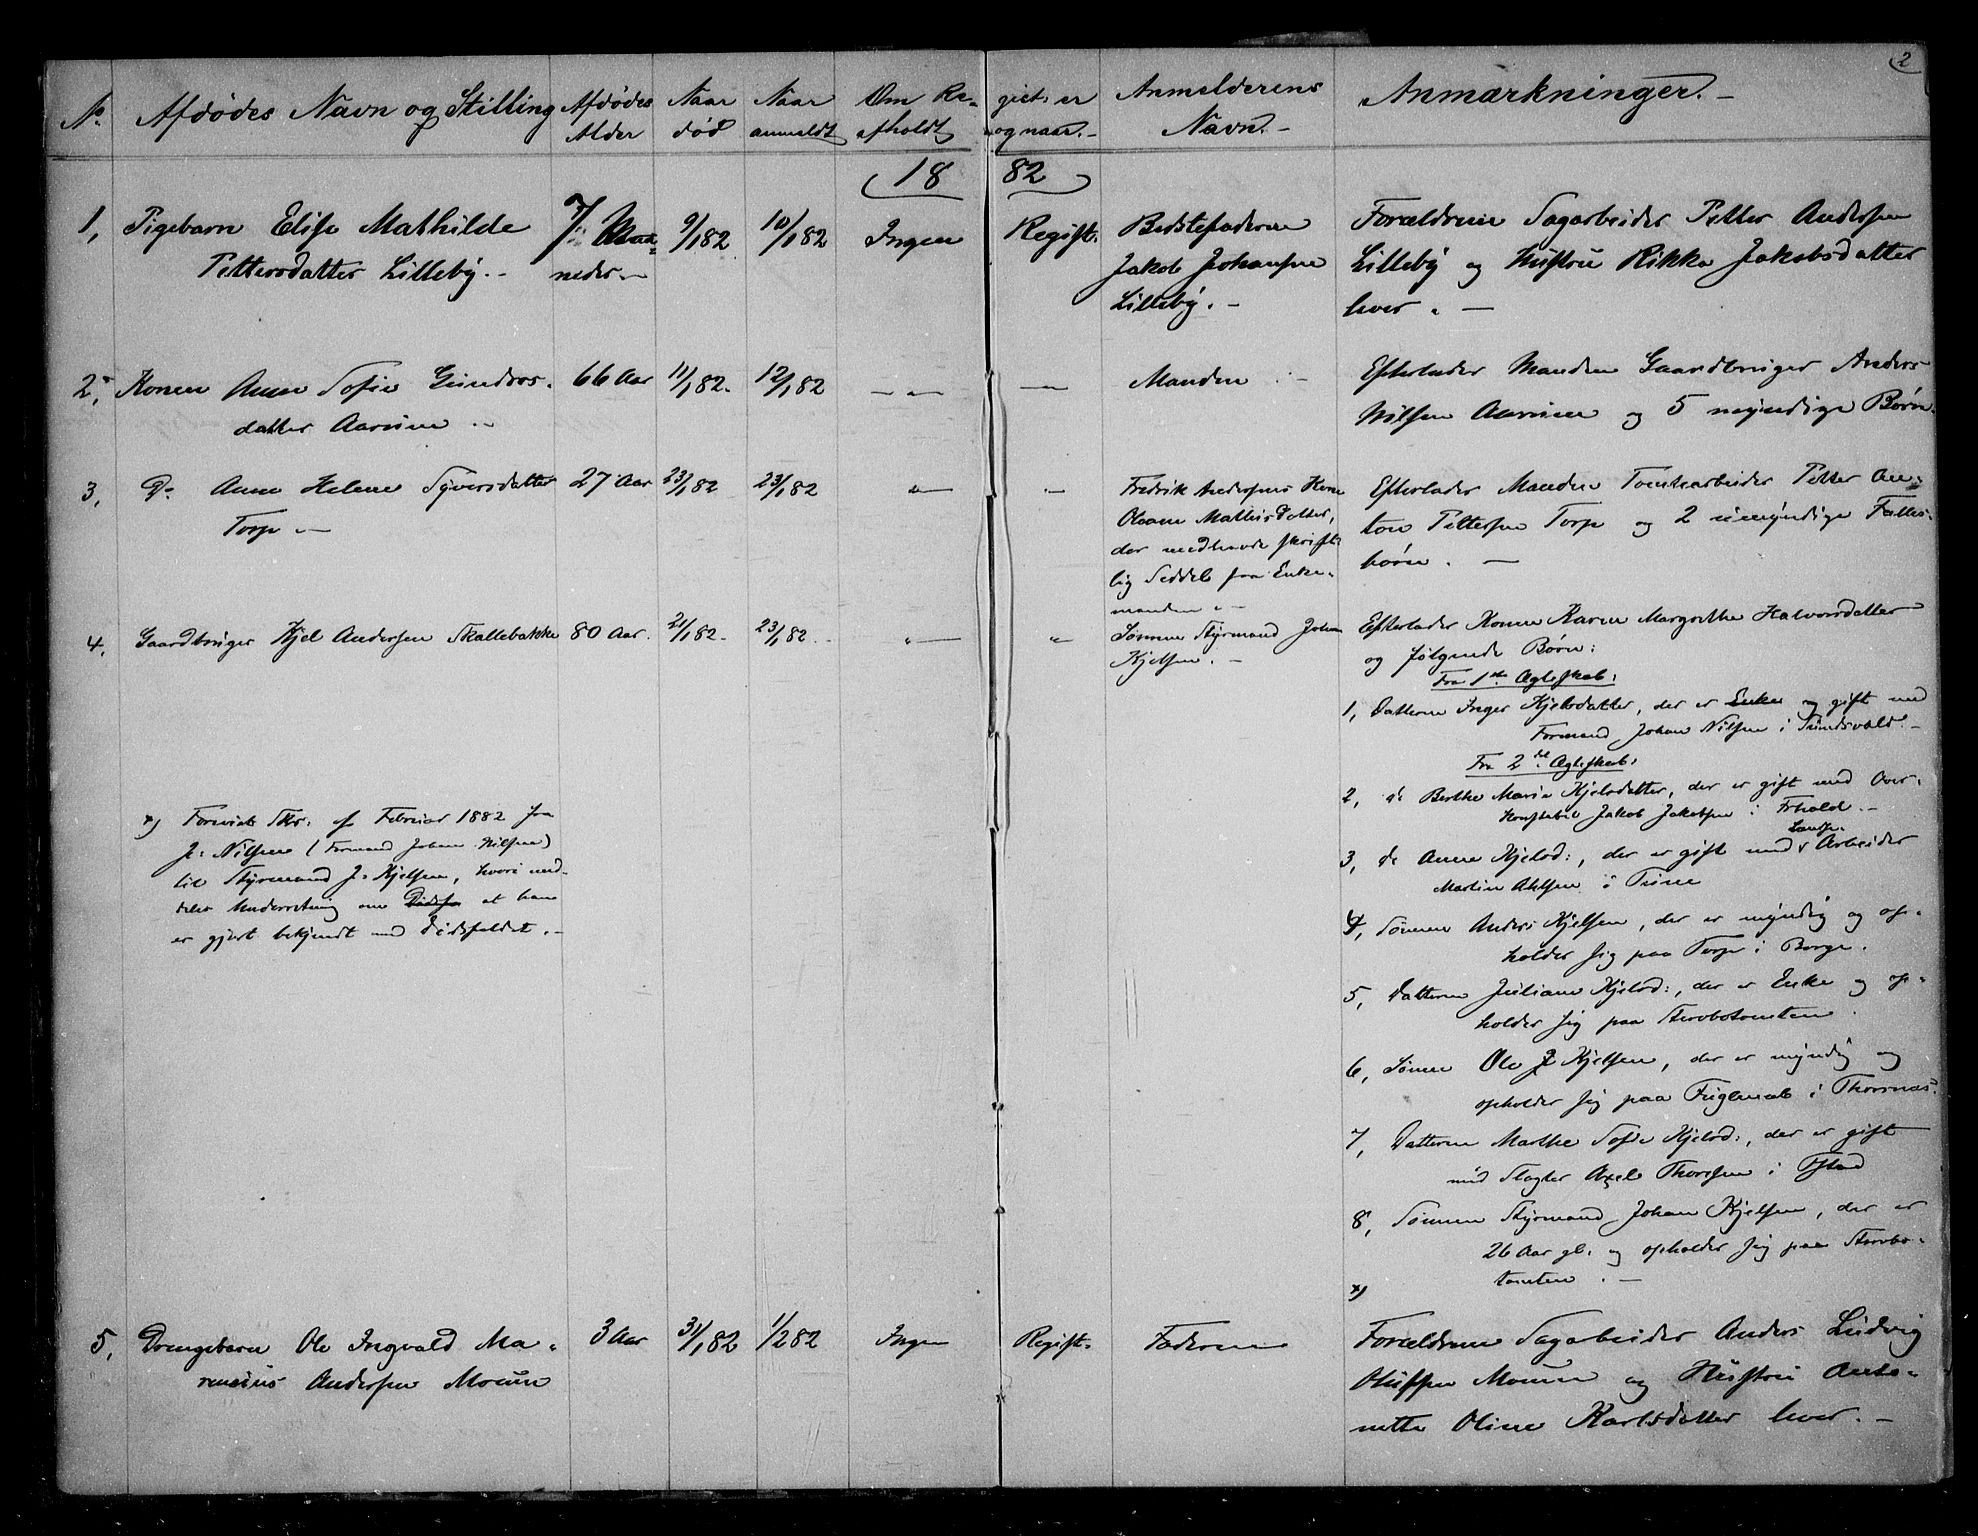 2
No. Afdødes Navn og Stilling Afdødes Alder Naar død Naar anmeldt Om Regist: er afholdt og naar.- Anmelderens Navn.- Anmærkninger.-
1882
1, Pigebarn Elise Mathilde 7 Maa- 9/1 82 10/1 82 Ingen Regist: Bedstefaderen Forældrene Sagarbeider Petter Andersen
Pettersdatter Lilleby.- neder.- Jakob Johansen Lilleby og Hustru Rikka Jakobsdatter
Lilleby.- lever.-
2, Konen Anne Sofie Gundros- 66 Aar 11/1 82. 12/1 82 -"- -"- Manden.- Efterlader Manden Gaardbruger Anders
datter Aarum.- Nilsen Aarum og 5 myndige Børn.
3, Do Anne Helene Syversdatter 27 Aar 23/1 82 23/1 82 " " Fredrik Andersens Kone Efterlader Manden Tomtearbeider Petter An-
Torp.- Oleane Mathisdatter, ton Pettersen Torp og 2 umyndige Fælles-
der medhavde skrift- børn.-
lig Seddel fra Enke-
manden.-
4, Gaardbruger Kjel Andersen Skallebakke 80 Aar. 21/1 82.- 23/1 82.- " " Sønnen Styrmand Johan Efterlader Konen Karen Margrethe Halvorsdatter
Kjelsen.- og følgende Børn:
Fra 1ste Ægteskab:
1, Datteren Inger Kjelsdatter, der er Enke og gift med
Formand Johan Nilsen i Sundsvald.-
Fra 2det Ægteskab:
2, do Berthe Marie Kjelsdatter, der er gift med Over-
konstabel Jakob Jakobsen i Frhald.-
3, do Anne Kjelsd:, der er gift med Arbeider
Martin Ahlsen i Tune
4, Sønnen Anders Kjelsen, der er myndig og op-
holder sig paa Torp i Borge.
5, Datteren Juliane Kjelsd:, der er Enke og op-
holder sig paa
6, Sønnen Ole Kjelsen, der er myndig og
opholder sig paa Fuglevik i Thorsnæs.
7, Datteren Marthe Sofie Kjelsd:, der er gift
med Slagter Axel Thoresen i Fstad
8, Sønnen Styrmand Johan Kjelsen, der er
26 Aar gl. og opholder sig paa
tomten.-
x)
x) Forevist Skr: af Februar 1882 fra
J. Nilsen (Formand Johan Nilsen)
til Styrmand J. Kjelsen, hvori med-
deles Underretning om at han
er gjort bekjendt med Dødsfaldet.-
5, Drengebarn Ole Ingvald Ma- 3 Aar 31/1 82 1/2 82 Ingen Regist: Faderen Forældrene Sagarbeider Anders Ludvig
rensius Andersen Moum Olufsen Moum og Hustru Anto-
nette Oline Karlsdatter lever.-